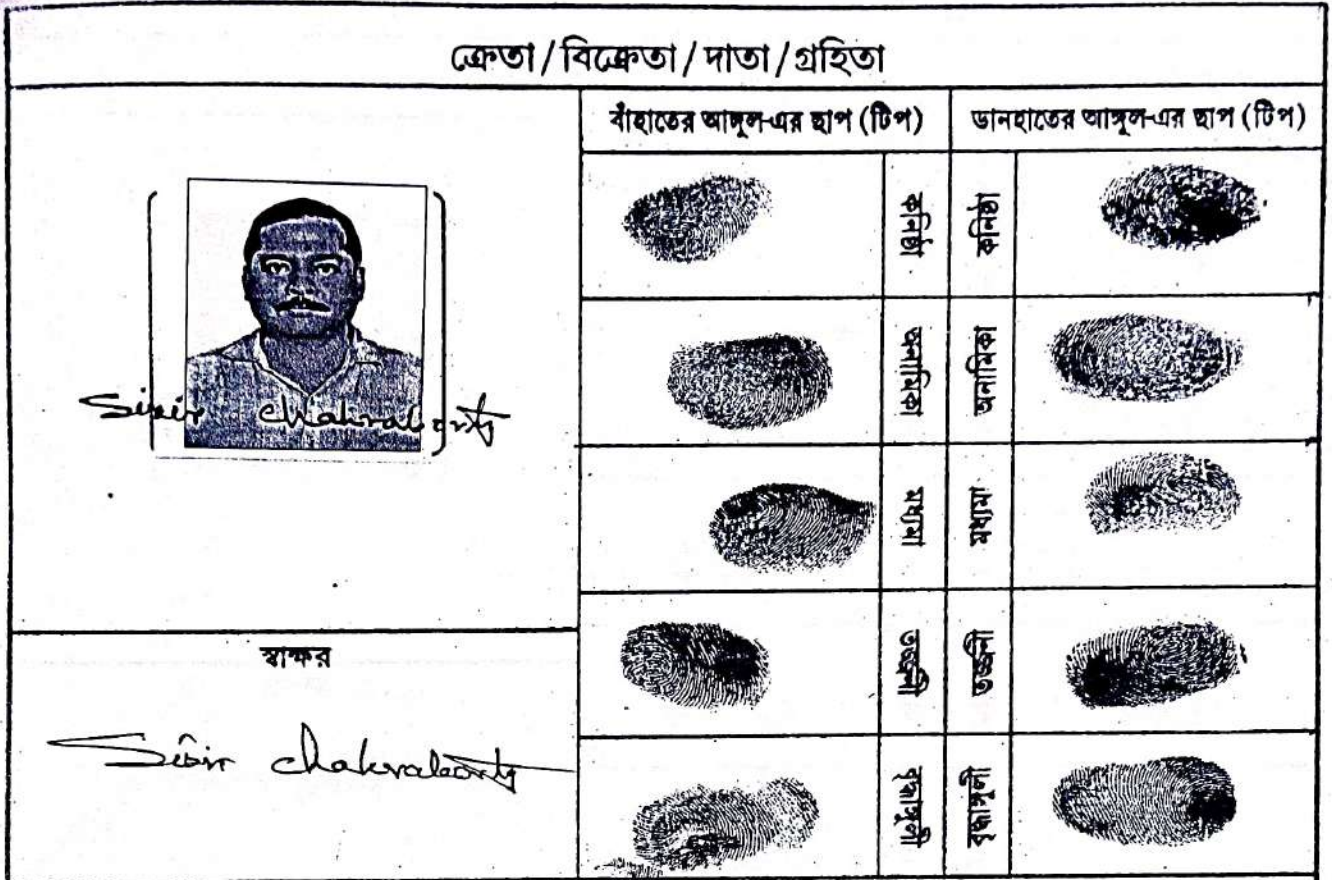 ক্রেতা / বিক্রেতা / দাতা / গ্রহিতা
বাঁহাতের আঙ্গুল-এর ছাপ (টিপ)
ডানহাতের আঙ্গুল-এর ছাপ (টিপ)
কনিষ্ঠা
কনিষ্ঠা
অনামিকা
অনামিকা
মধ্যমা
মধ্যমা
তর্জ্জনী
তর্জ্জনী
বৃদ্ধাঙ্গুলী
বৃদ্ধাঙ্গুলী
Sisir Chakraborty
স্বাক্ষর
Sisir Chakraborty